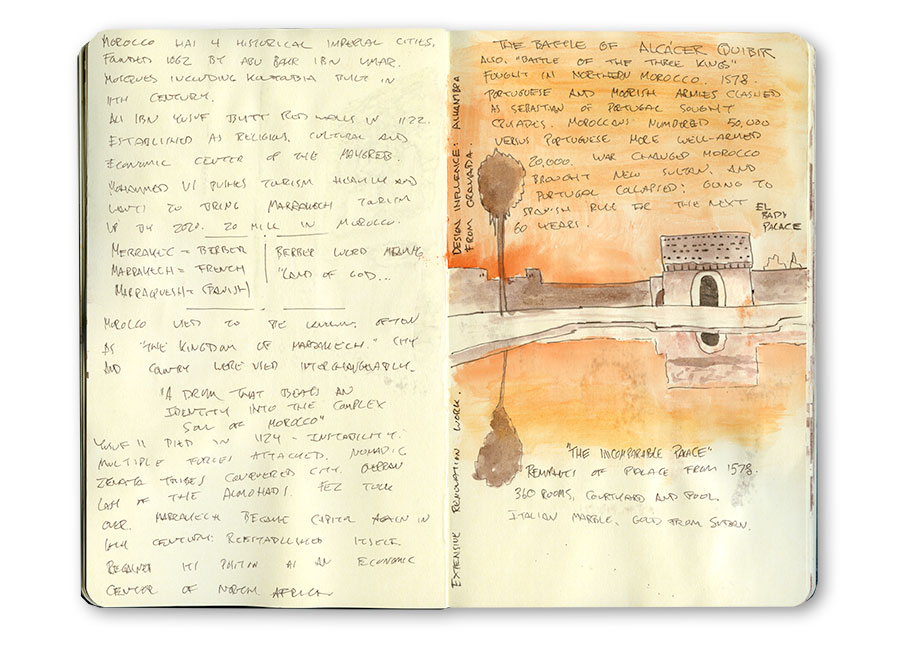 MOROCCO HAS 4 HISTORICAL IMPERIAL CITIES.
FOUNDED 1062 BY ABU BAKR IBN UMAR.
MOSQUES INCLUDING KOUTOUBIA BUILT IN
11TH CENTURY.
ALI IBN YUSUF BUILT RED WALLS IN 1122.
ESTABLISHED AS RELIGIOUS, CULTURAL AND
ECONOMIC CENTER OF THE MAHGREB.
MOHAMMED VI PUSHES TOURISM HEAVILY AND
WANTS TO BRING MARRAKECH TOURISM
UP BY 2020. 20 MILL IN MOROCCO.
MERRAKEC = BERBER
MARRAKECH = FRENCH
MARRAQUESH = SPANISH
BERBER WORD MEANING
"LAND OF GOD...
MOROCCO USED TO BE KNOWN OFTEN
AS "THE KINGDOM OF MARRAKECH." CITY
AND COUNTRY WERE USED INTERCHANGEABLY.
"A DRUM THAT BEATS AN
IDENTITY INTO THE COMPLEX
SOUL OF MOROCCO"
YUSUF II DIED IN 1124 - INSTABILITY.
MULTIPLE FORCES ATTACKED. NOMADIC
ZENATA TRIBES CONQUERED CITY. OVERRAN
LAST OF THE ALMOHADS. FEZ TOOK
OVER. MARRAKECH BECAME CAPITAL AGAIN IN
CENTURY: REESTABLISHED ITSELF.
REGAINED ITS POSITION AS AN ECONOMIC
CENTER OF NORTH AFRICA
DESIGN INFLUENCE: ALHAMBRA
FROM GRANADA.
EXTENSIVE RENOVATION WORK.
THE BATTLE OF ALCÁCER QUIBIR
ALSO, "BATTLE OF THE THREE KINGS"
FOUGHT IN NORTHERN MOROCCO. 1578.
PORTUGUESE AND MOORISH ARMIES CLASHED
AS SEBASTIAN OF PORTUGAL SOUGHT
CRUSADES. MOROCCANS NUMBERED 50,000
VERSUS PORTUGUESE MORE WELL-ARMED
20,000. WAR CHANGED MOROCCO
BROUGHT NEW SULTAN. AND
PORTUGAL COLLAPSED; GOING TO
SPANISH RULE FOR THE NEXT
60 YEARS.
EL
BADI
PALACE
"THE INCOMPARABLE PALACE"
REMNANTS OF PALACE FROM 1578.
360 ROOMS, COURTYARD AND POOL.
ITALIAN MARBLE. GOLD FROM SUDAN.